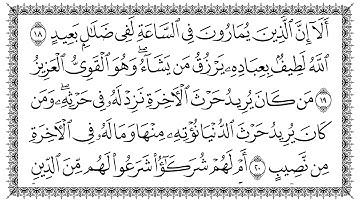 أَلَآ إِنَّ ٱلَّذِينَ يُمَارُونَ فِى ٱلسَّاعَةِ لَفِى ضَلَٰلٍۭ بَعِيدٍ ١٨
ٱللَّهُ لَطِيفٌۢ بِعِبَادِهِۦ يَرْزُقُ مَن يَشَآءُ ۖ وَهُوَ ٱلْقَوِىُّ ٱلْعَزِيزُ
١٩ مَن كَانَ يُرِيدُ حَرْثَ ٱلْءَاخِرَةِ نَزِدْ لَهُۥ فِى حَرْثِهِۦ ۖ وَمَن
كَانَ يُرِيدُ حَرْثَ ٱلدُّنْيَا نُؤْتِهِۦ مِنْهَا وَمَا لَهُۥ فِى ٱلْءَاخِرَةِ
مِن نَّصِيبٍ ٢٠ أَمْ لَهُمْ شُرَكَٰٓؤُا۟ شَرَعُوا۟ لَهُم مِّنَ ٱلدِّينِ